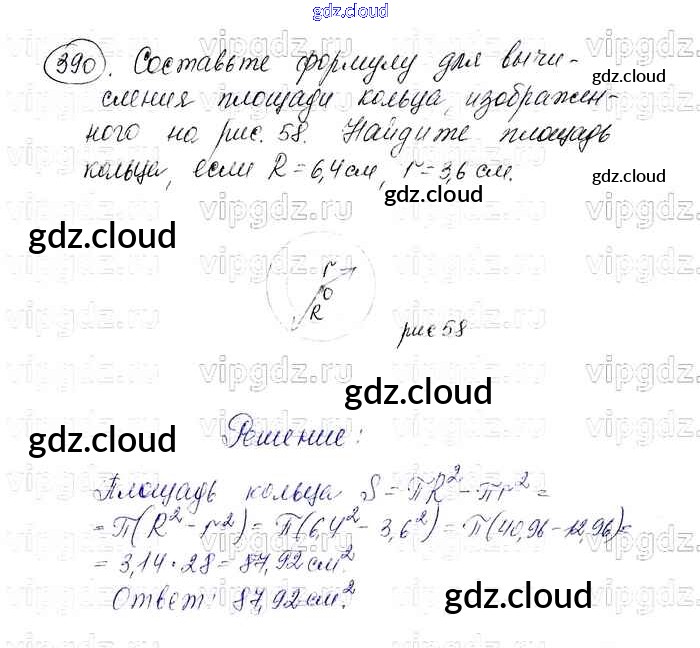 gdz.cloud
390. Составьте формулу для вычи-
сления площади кольца, изображен-
ного на рис. 58. Найдите площадь
кольца, если R = 6,4 см, r = 3,6 см.
gdz.cloud
gdz.cloud
gdz.cloud
gdz.cloud
r
O
R
рис 58
gdz.cloud
gdz.cloud
gdz.cloud
Решение:
Площадь кольца S = πR² - πr² =
= π(R² - r²) = π(6,4² - 3,6²) = π(40,96 - 12,96) =
= 3,14 · 28 = 87,92 см².
Ответ: 87,92 см².
gdz.cloud
gdz.cloud
vipgdz.ru